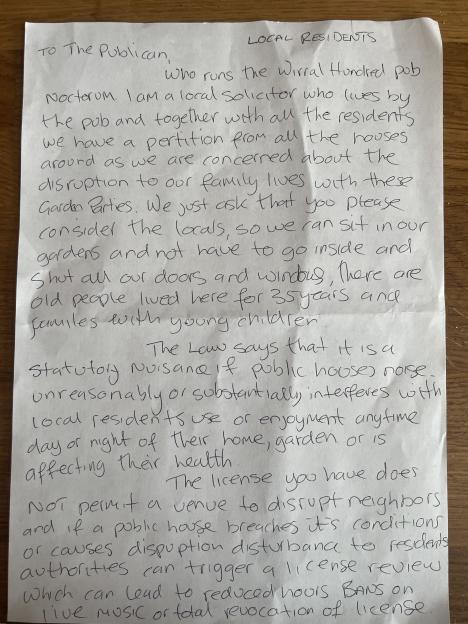 LOCAL RESIDENTS
To The Publican,
who runs the Wirral Hundred pub
Noctorum. I am a local solicitor who lives by
the pub and together with all the residents
we have a partition from all the houses
around as we are concerned about the
disruption to our family lives with these
Garden Parties. We just ask that you please
consider the locals, so we can sit in our
gardens and not have to go inside and
shut all our doors and windows, There are
old people lived here for 35 years and
familes with young children
The Law says that it is a
Statutory Nuisance if public houses noise
unreasonably or substantially interferes with
local residents use or enjoyment anytime
day or night of their home, garden or is
affecting their health.
The license you have does
Not permit a venue to disrupt neighbors
and if a public house breaches it's conditions
or causes disruption disturbance to residents
authorities can trigger a license review
which can lead to reduced hours BANS on
live music or total revocation of license.